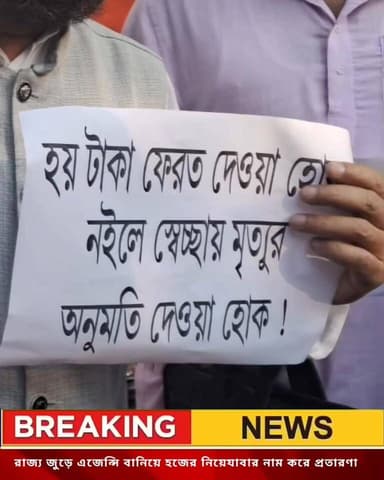 হয় টাকা ফেরত দেওয়া হো
নইলে স্বেচ্ছায় মৃত্যুর
অনুমতি দেওয়া হোক !
BREAKING NEWS
রাজ্য জুড়ে এজেন্সি বানিয়ে হজের নিয়েযাবার নাম করে প্রতারণা